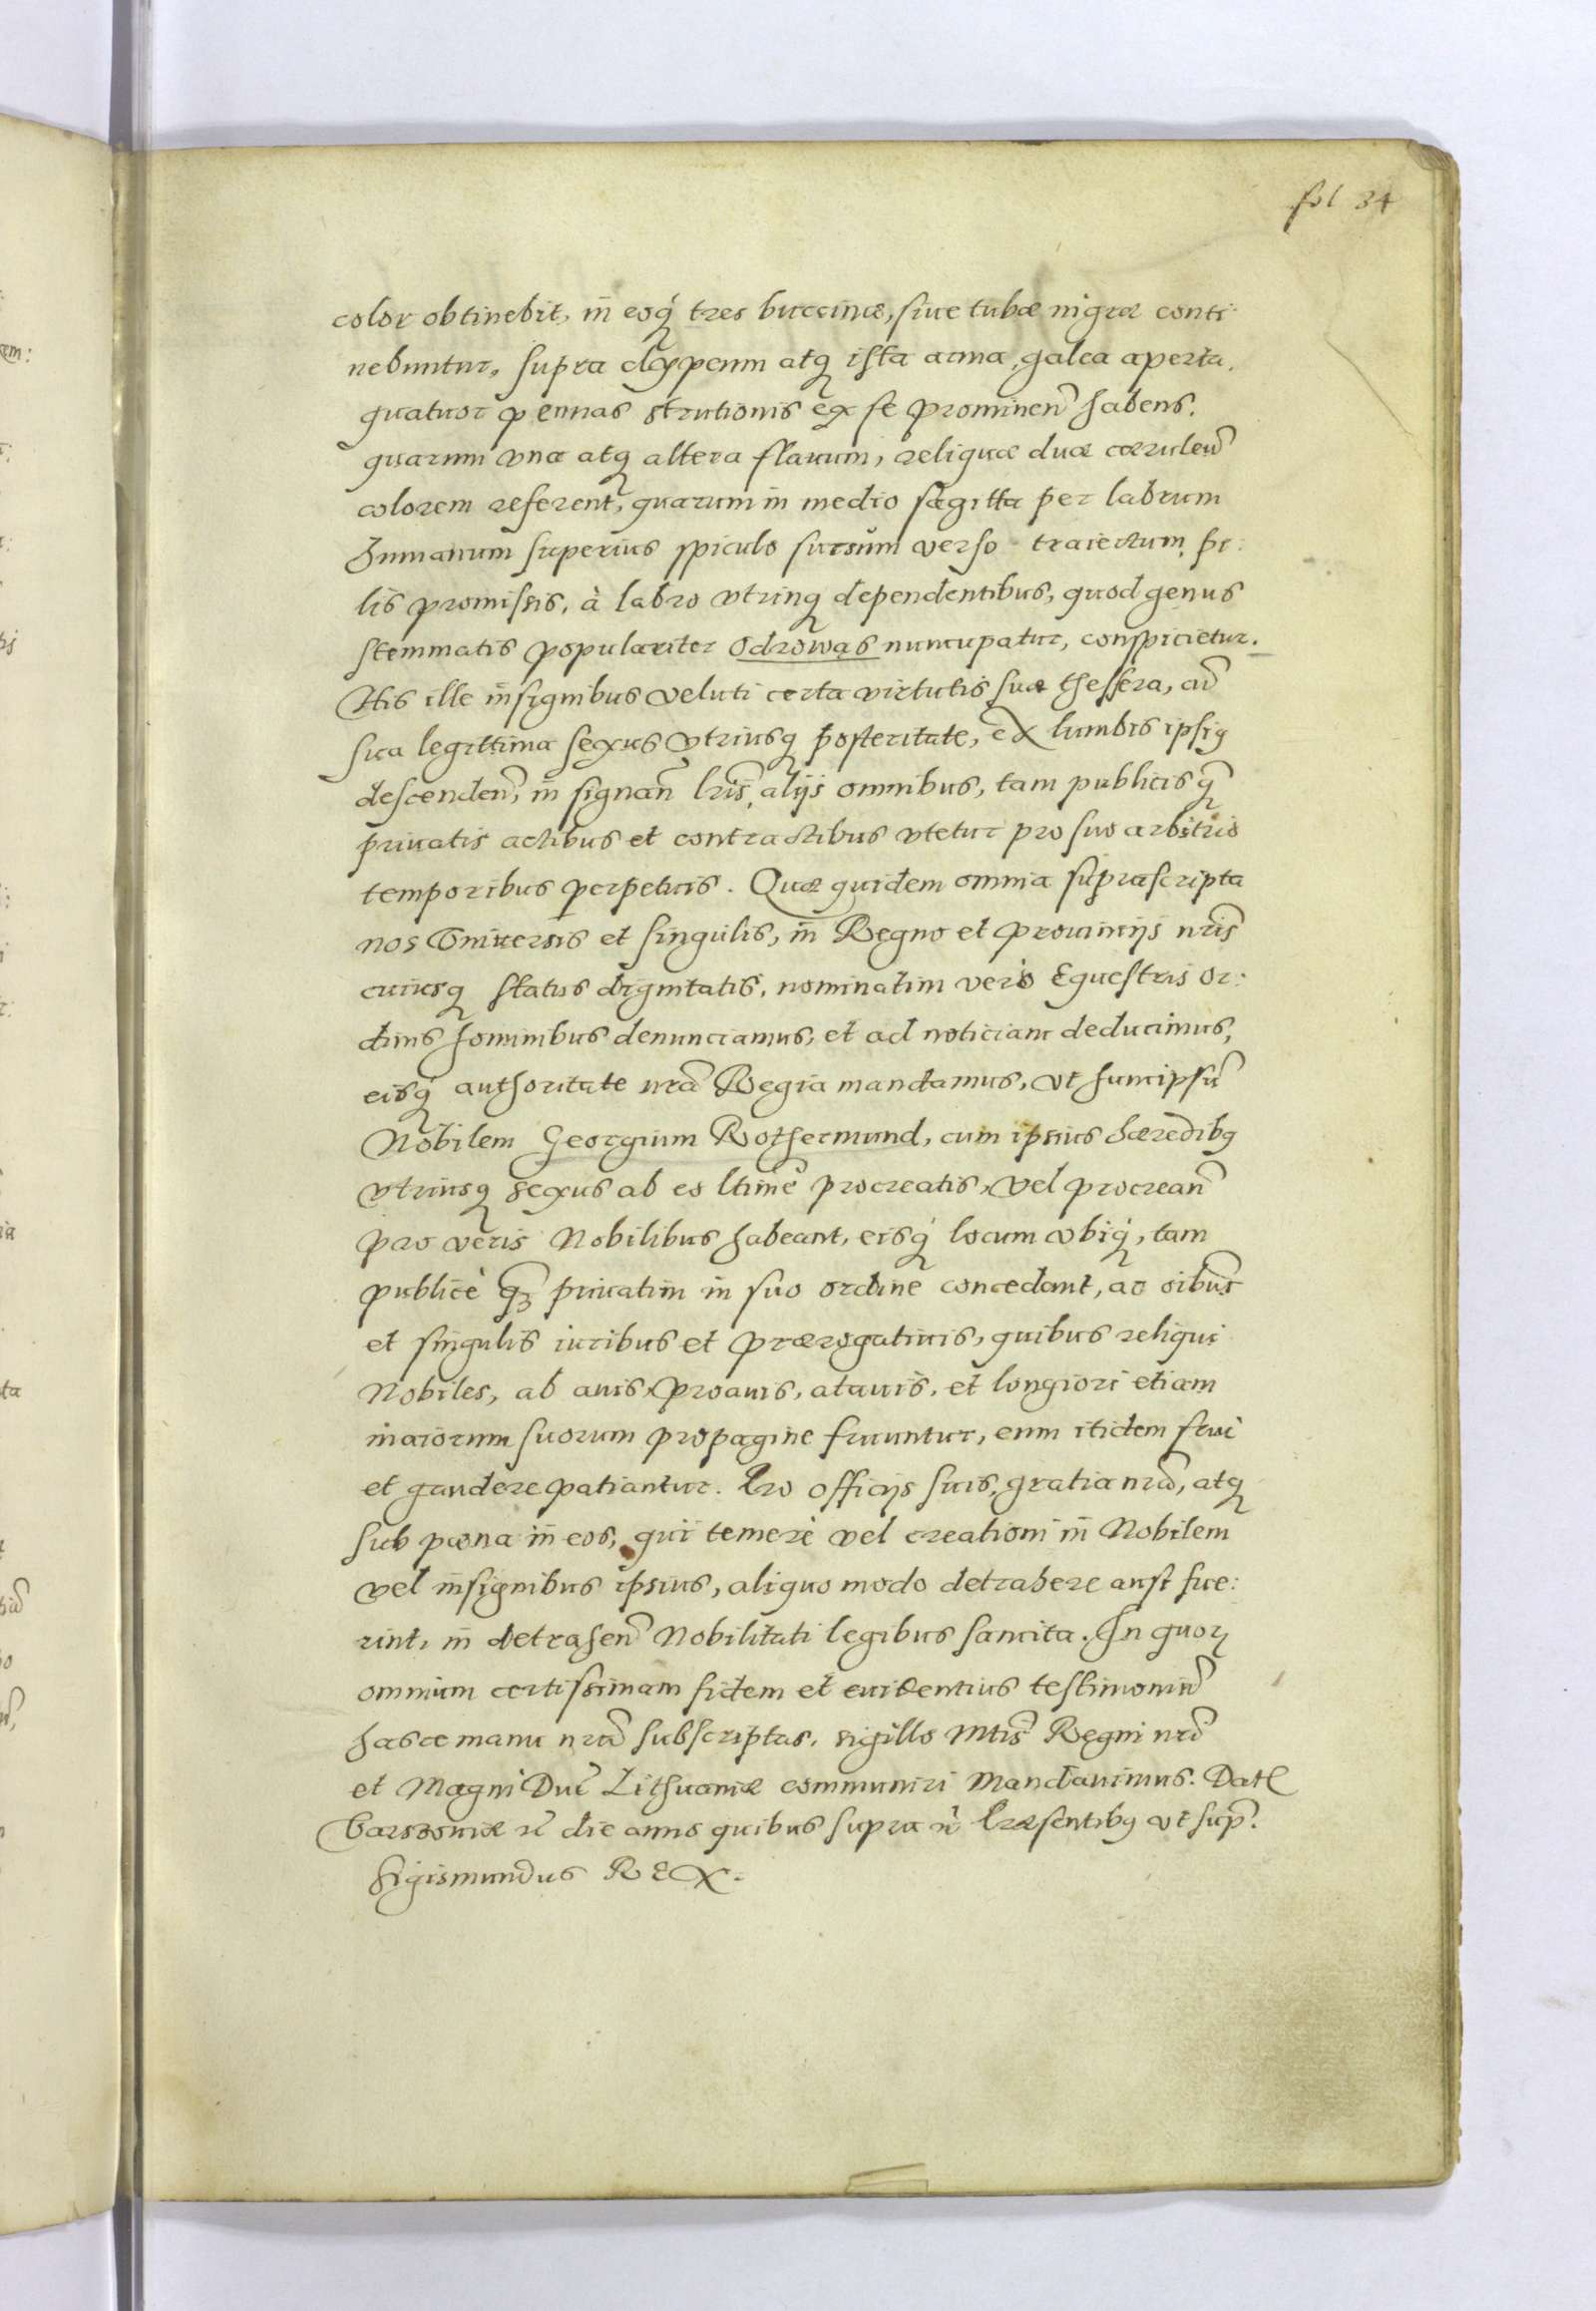 fol 34
color obtinebit, in eoq́ tres buccinæ, siue tubæ nigræ conti-
nebuntur, supra clypeum atq ista arma, galea aperta,
quatuor pennas strutionis ex se prominen̄ habens.
quarum vna atq altera flauum, reliquæ duæ cæruleū
colorem referent, quarum in medio sagitta per labrum
humanum superius spiculo sursùm verso traiectum, pi:
lis promissis, à labro vtrinq dependentibus, quod genus
stemmatis populariter Odrowąs nuncupatur, conspicietur.
His ille insignibus veluti certa virtutis suæ thessera, cū
sua legittima sexus vtriusq posteritate, ex lumbis ipsiq
descenden̄, in signan̄ lris̄, alijs omnibus, tam publicis q̄
priuatis actibus et contractibus vtetur pro suo arbitrio
temporibus perpetuis. Quæ quidem omnia suprascripta
nos Vniuersis et singulis, in Regno et prouincijs nris̄
cuiusq status dignitatis, nominatim verò Equestris or:
dinis hominibus denunciamus, et ad noticiam deducimus,
eisq́ authoritate nrā Regia mandamus, vt huncipsū
Nobilem Georgium Rothermund, cum ipsius hæredibq
vtriusq sexus ab eo ltimē procreatis, vel procrean̄
pro veris Nobilibus habeant, eisq́ locum vbiq́, tam
publicè q̄ priuatim in suo ordine concedant, ac oībus
et singulis iuribus et prærogatiuis, quibus reliqui
Nobiles, ab auis, proauis, atauis, et longiori etiam
maiorum suorum propagine fruuntur, eum itidem frui
et gaudere patiantur. Pro officijs suis, gratia nrā, atq
sub pæna in eos, qui temerè vel creationi in Nobilem
vel insignibus ipsius, aliquo modo detrahere ausi fue:
rint, in detrahen̄ Nobilitati legibus sancita. In quorꝫ
omnium certissimam fidem et euidentius testimoniū
hasce manu nrā subscriptas, sigillo Mtis̄ Regni nrī
et Magni Duc̄ Lithuaniæ communiri Mandauimus. Datꝭ
Varszouiæ die anno quibus supra Præsentibq vt sup̄.
Sigismundus REX.